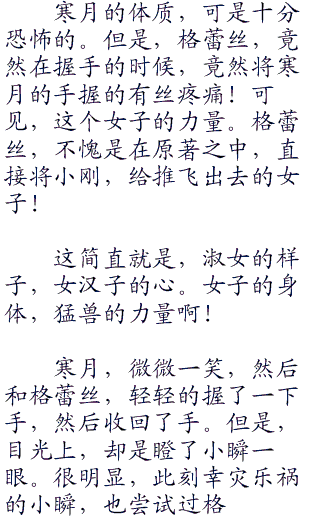 寒月的体质，可是十分
恐怖的。但是，格蕾丝，竟
然在握手的时候，竟然将寒
月的手握的有丝疼痛！可
见，这个女子的力量。格蕾
丝，不愧是在原著之中，直
接将小刚，给推飞出去的女
子！
这简直就是，淑女的样
子，女汉子的心。女子的身
体，猛兽的力量啊！
寒月，微微一笑，然后
和格蕾丝，轻轻的握了一下
手，然后收回了手。但是，
目光上，却是瞪了小瞬一
眼。很明显，此刻幸灾乐祸
的小瞬，也尝试过格